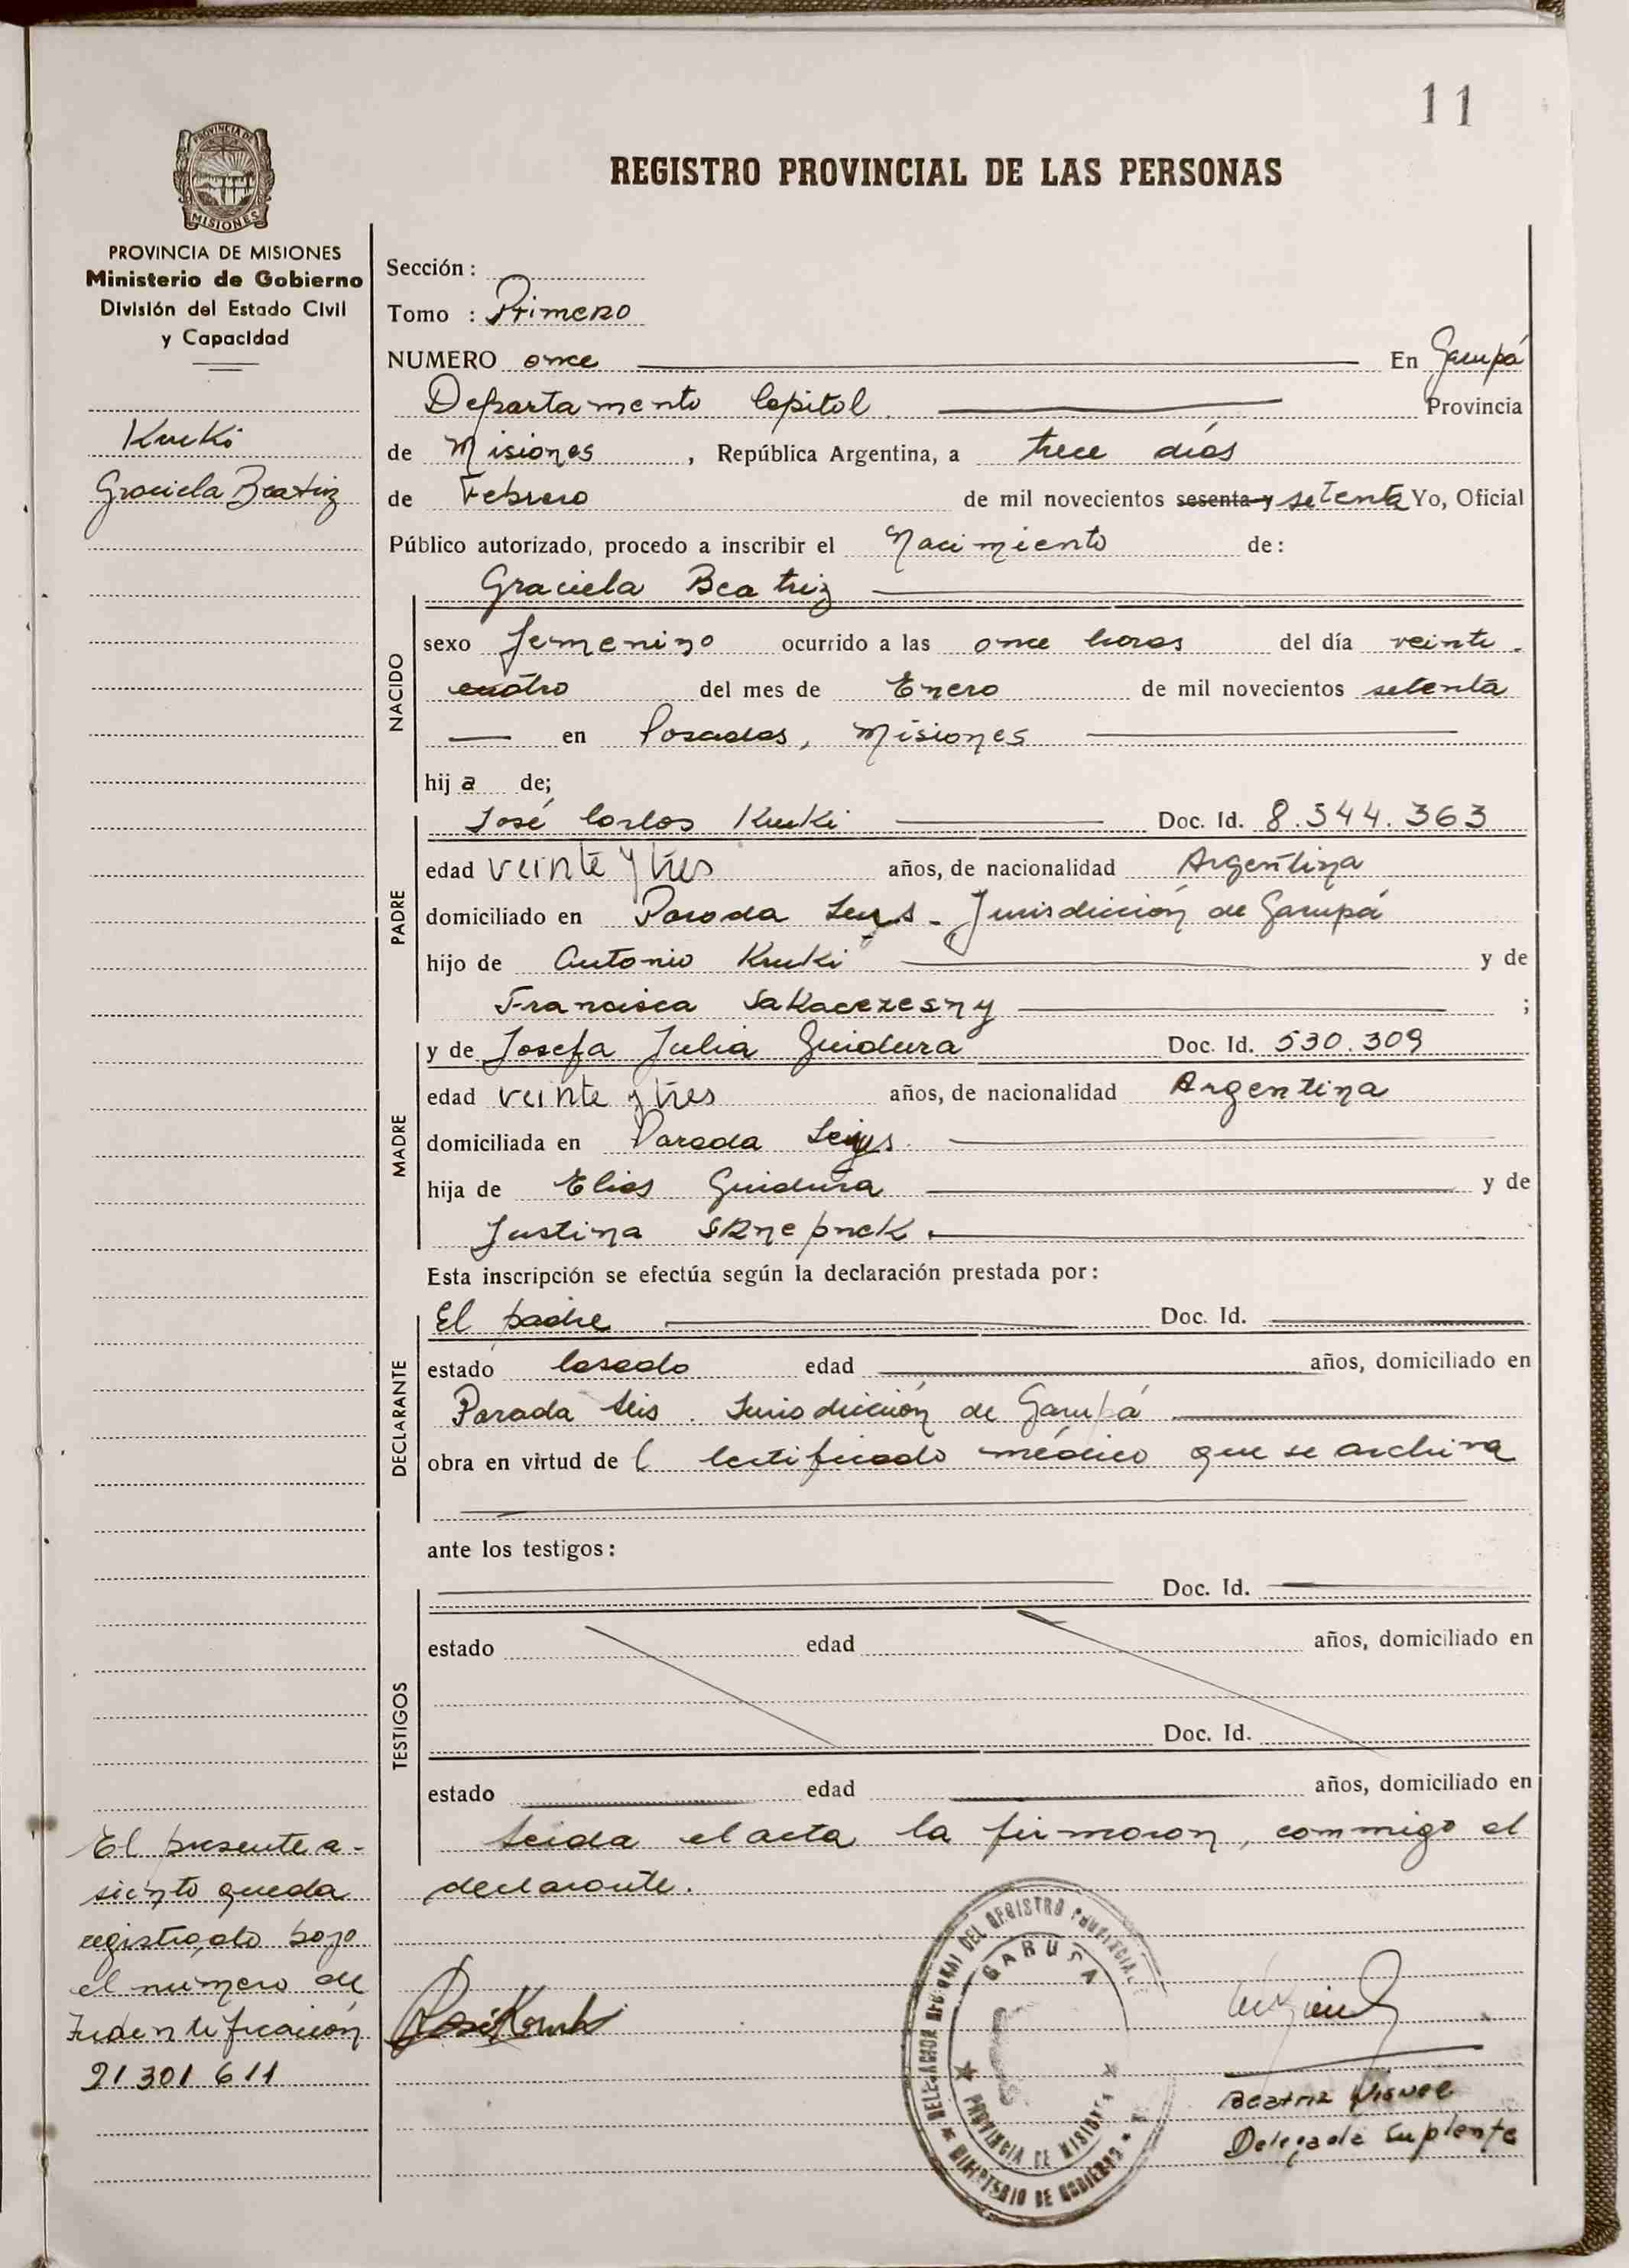 11
PROVINCIA DE
MISIONES
REGISTRO PROVINCIAL DE LAS PERSONAS
PROVINCIA DE MISIONES
Ministerio de Gobierno
División del Estado Civil
y Capacidad
Kruki
Graciela Beatriz
Sección:
Tomo : Primero
NUMERO once En Garupá
Departamento Capital Provincia
de Misiones, República Argentina, a trece días
de Febrero de mil novecientos sesenta y setenta Yo, Oficial
Público autorizado, procedo a inscribir el Nacimiento de:
Graciela Beatriz
NACIDO
sexo femenino ocurrido a las once horas del día veinti-
cuatro del mes de Enero de mil novecientos setenta
en Posadas, Misiones
hija de;
PADRE
José Carlos Kruki Doc. Id. 8.544.363
edad veinte y tres años, de nacionalidad Argentina
domiciliado en Parada Leis - Jurisdicción de Garupá
hijo de Antonio Kruki y de
Francisca Sakacezesny ;
MADRE
y de Josefa Julia Guidura Doc. Id. 530.309
edad veinte y tres años, de nacionalidad Argentina
domiciliada en Parada Leis
hija de Elias Guidura y de
Justina
Esta inscripción se efectúa según la declaración prestada por:
DECLARANTE
El padre Doc. Id.
estado Casado edad años, domiciliado en
Parada Leis. Jurisdicción de Garupá
obra en virtud del Certificado médico que se archiva
ante los testigos:
TESTIGOS
Doc. Id.
estado edad años, domiciliado en
Doc. Id.
estado edad años, domiciliado en
Leida el acta la firmaron, conmigo el
declarante.
El presente a-
siento queda
registrado bajo
el número de
Indentificación
21 301 611
DELEGACION REGIONAL DEL REGISTRO PROVINCIAL
GARUPA
PROVINCIA DE MISIONES
MINISTERIO DE GOBIERNO
Beatriz Miguel
Delegada Suplente